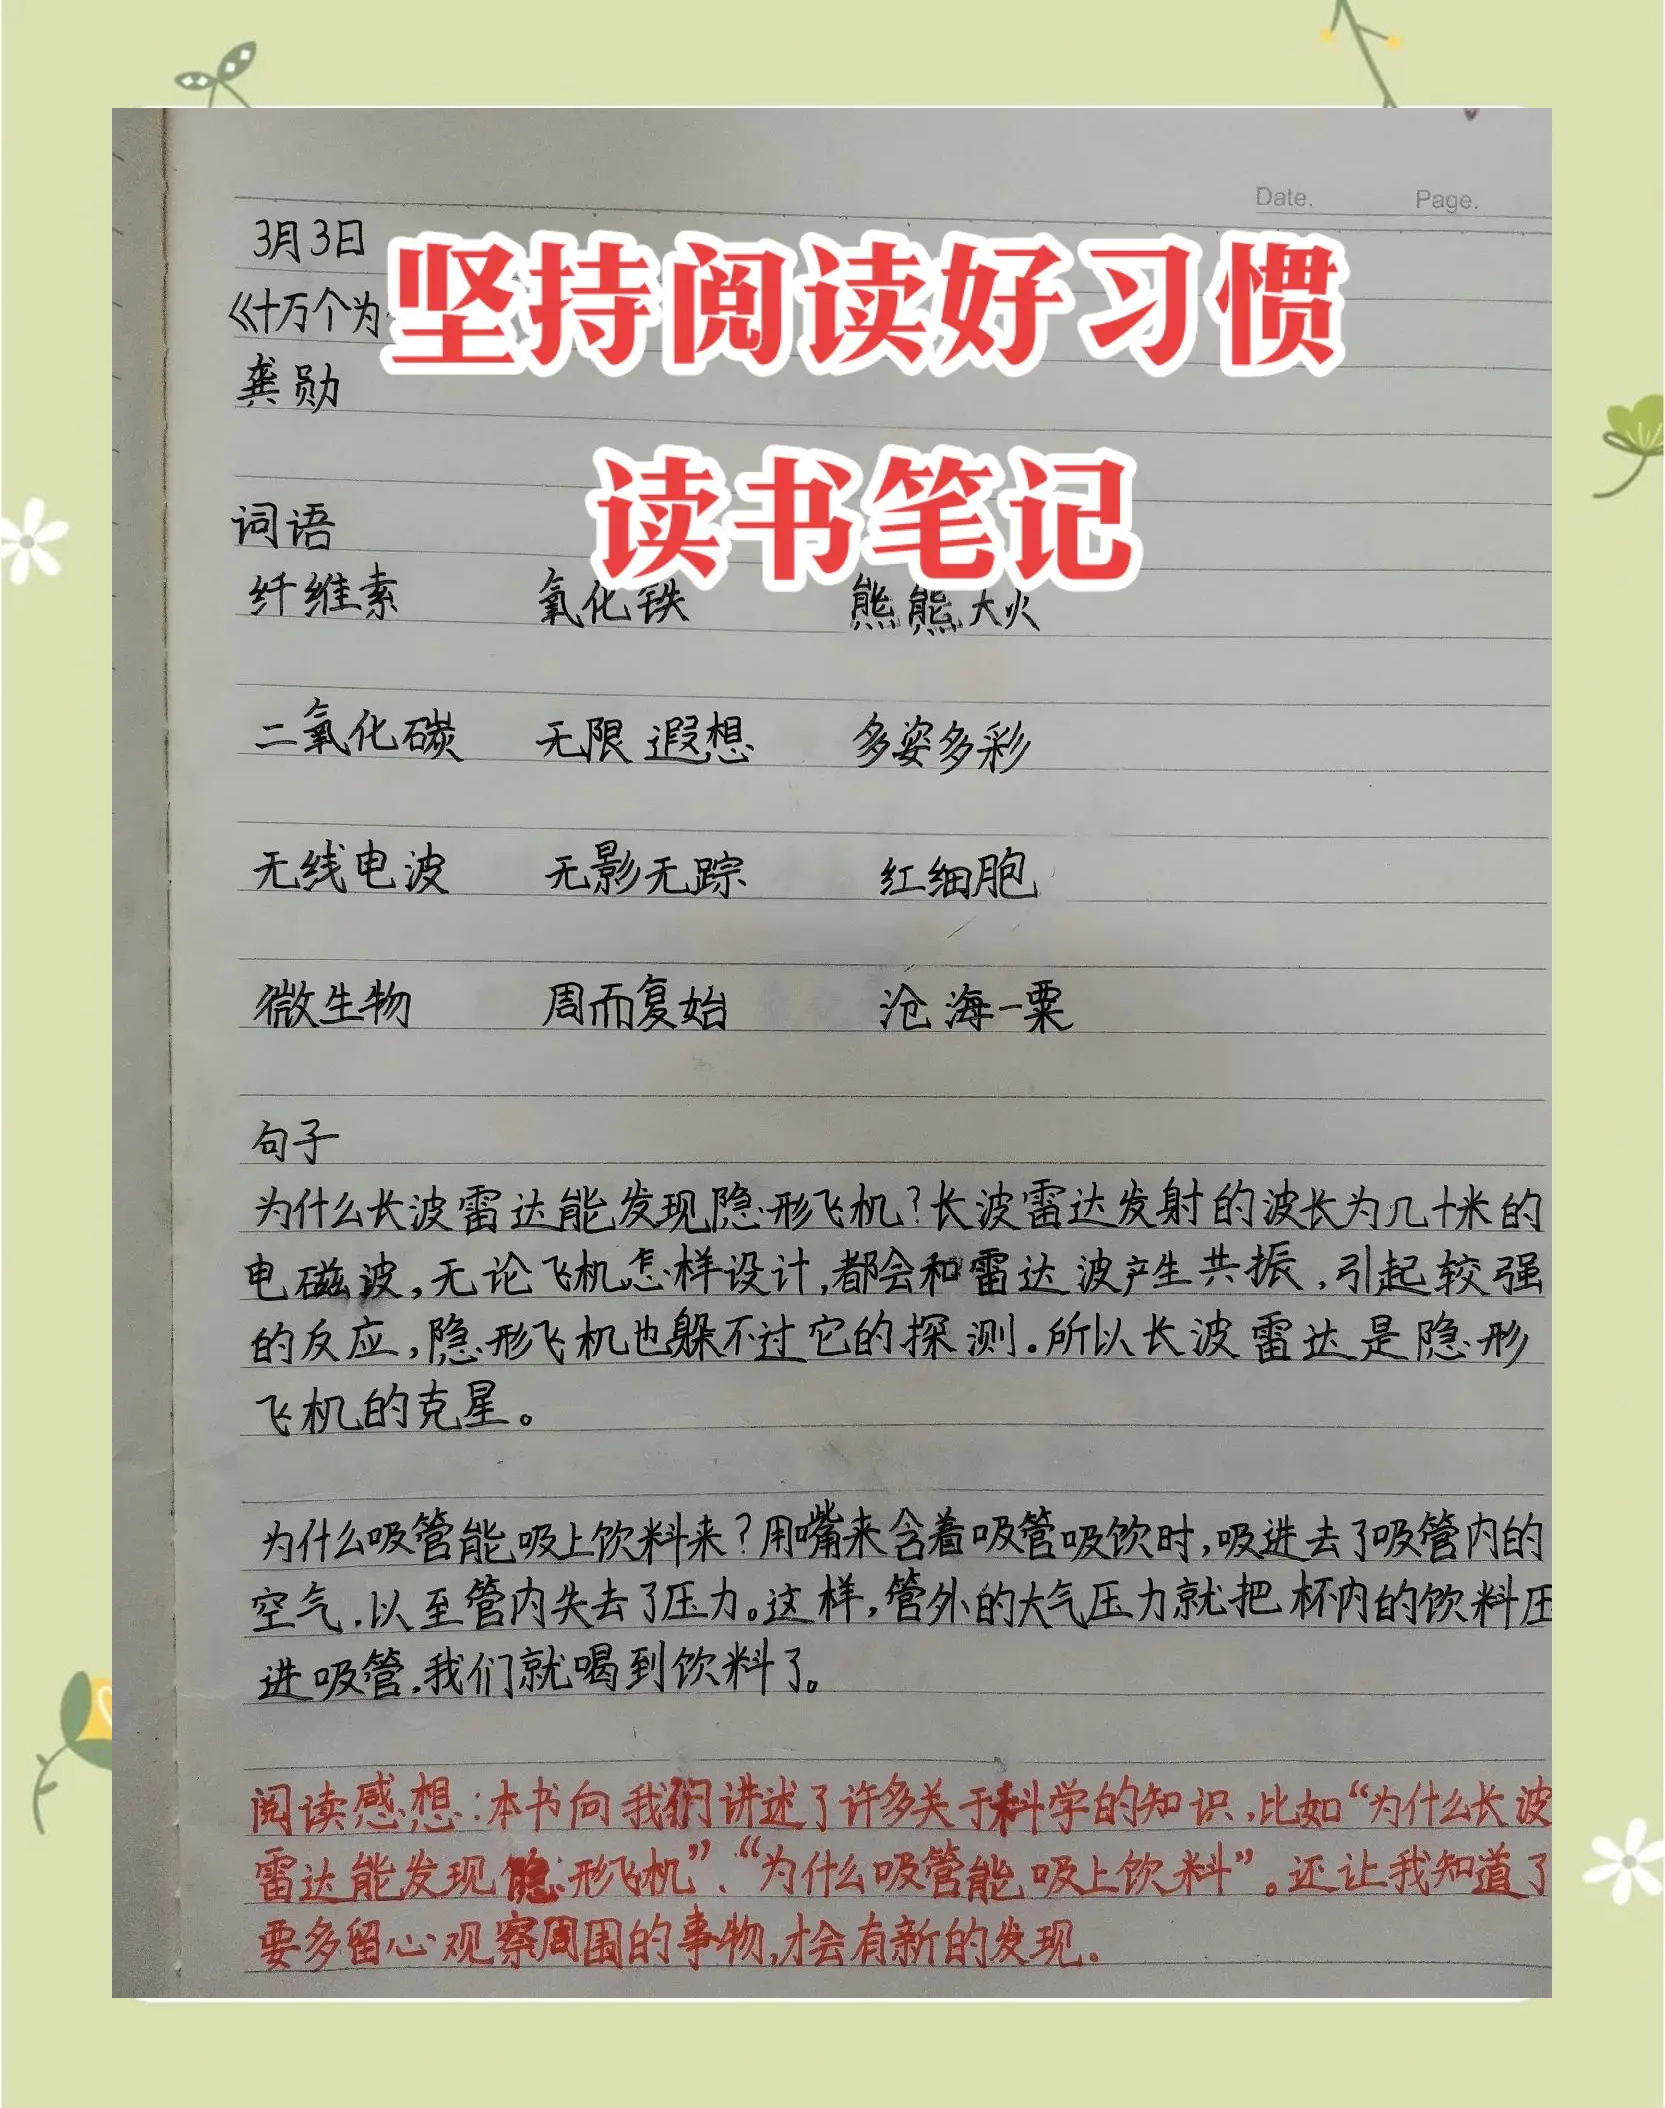 Date. Page.
3月3日
坚持阅读好习惯
《十万个为
龚勋
读书笔记
词语
纤维素 氧化铁 熊熊大火
二氧化碳 无限遐想 多姿多彩
无线电波 无影无踪 红细胞
微生物 周而复始 沧海一粟
句子
为什么长波雷达能发现隐形飞机?长波雷达发射的波长为几十米的
电磁波,无论飞机怎样设计,都会和雷达波产生共振,引起较强
的反应,隐形飞机也躲不过它的探测。所以长波雷达是隐形
飞机的克星。
为什么吸管能吸上饮料来?用嘴来含着吸管吸饮时,吸进去了吸管内的
空气,以至管内失去了压力。这样,管外的大气压力就把杯内的饮料压
进吸管,我们就喝到饮料了。
阅读感想:本书向我们讲述了许多关于科学的知识,比如“为什么长波
雷达能发现隐形飞机”、“为什么吸管能吸上饮料”。还让我知道了
要多留心观察周围的事物,才会有新的发现。